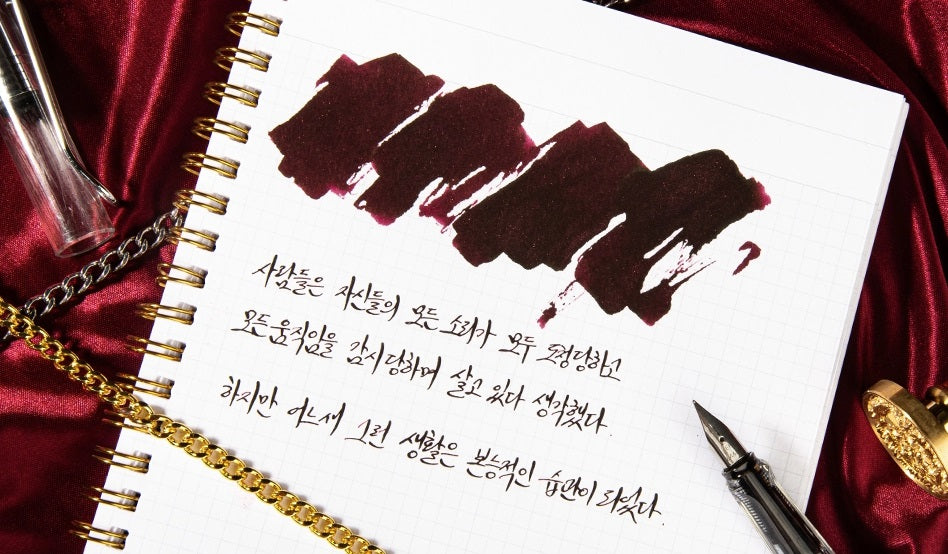 사람들은 자신들의 모든 소리가 모두 도청당하고
모든 움직임을 감시당하며 살고 있다 생각했다.
하지만 어느새 그런 생활은 본능적인 습관이 되었다.